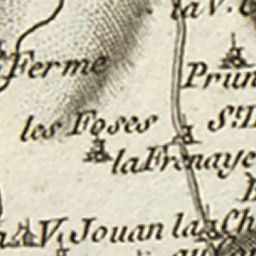 la V.
Ferme
Prun
les Foses
la Frenaye
V. Jouan la Ch